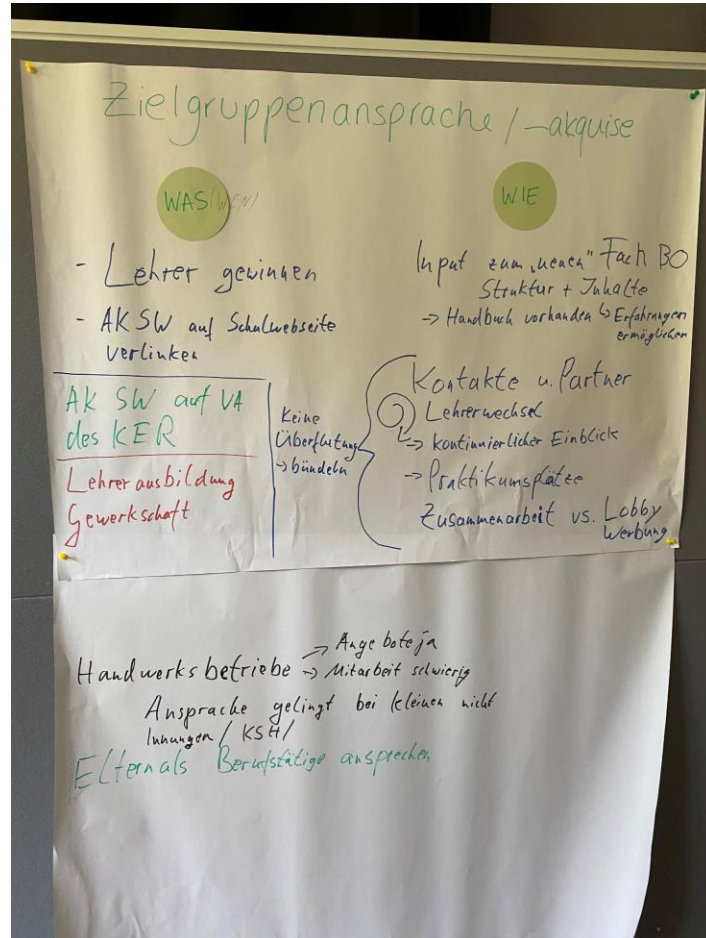 Zielgruppenansprache / -akquise
WAS (WEN)
- Lehrer gewinnen
- AK SW auf Schulwebseite
verlinken
AK SW auf VA
des KER
Lehrerausbildung
Gewerkschaft
Keine
Überflutung
→ bündeln
WIE
Input zum "neuen" Fach BO
Struktur + Inhalte
→ Handbuch vorhanden ↳ Erfahrungen
ermöglichen
Kontakte u. Partner
Lehrerwechsel
→ kontinuierlicher Einblick
→ Praktikumsplätze
Zusammenarbeit vs. Lobby
Werbung
Handwerksbetriebe → Angebote ja
→ Mitarbeit schwierig
Ansprache gelingt bei kleinen nicht
Innungen / KSH /
Eltern als Berufstätige ansprechen